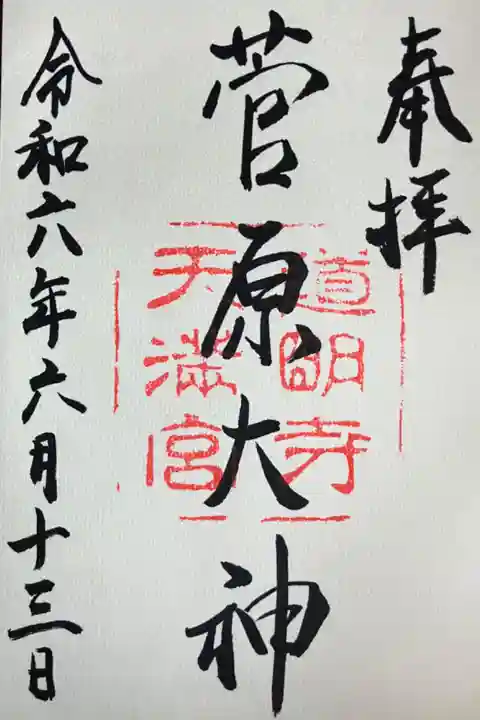 奉拝
菅原大神
道明寺
天満宮
令和六年六月十三日